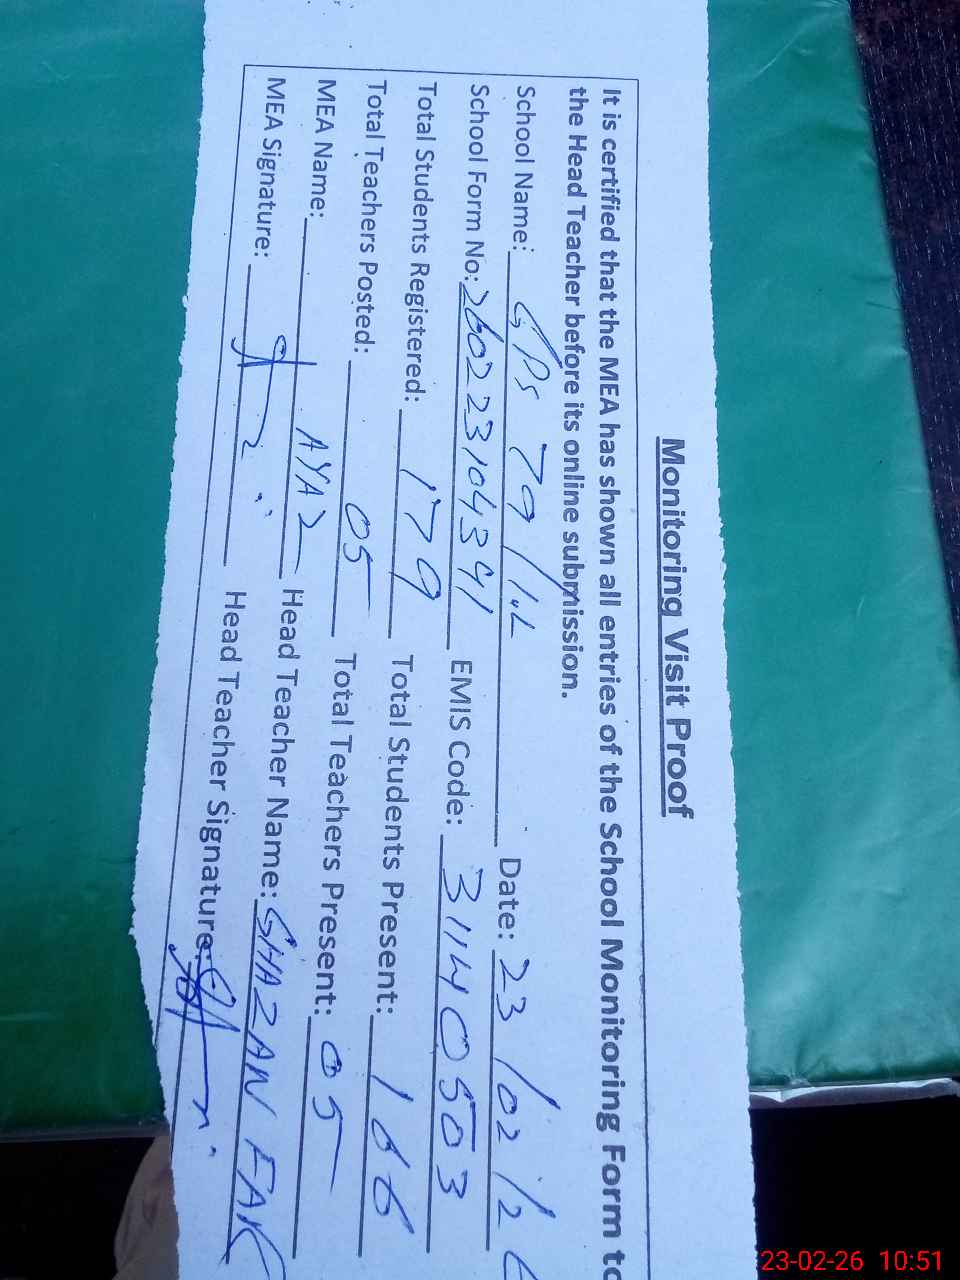 Monitoring Visit Proof
It is certified that the MEA has shown all entries of the School Monitoring Form to
the Head Teacher before its online submission.
School Name: GPS 79/1.L Date: 23/02/2
School Form No: 260223104341 EMIS Code: 31140503
Total Students Registered: 179 Total Students Present: 166
Total Teachers Posted: 05 Total Teachers Present: 05
MEA Name: AYAZ Head Teacher Name: GHAZAN FAR
MEA Signature: Head Teacher Signature:
23-02-26 10:51